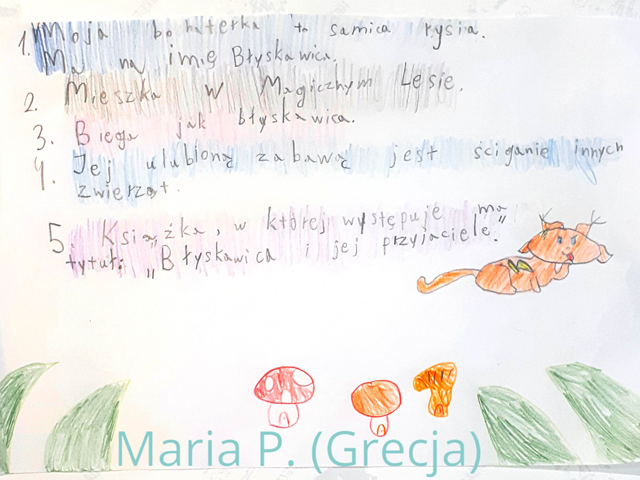 1. Moja bohaterka to samica rysia.
Ma na imię Błyskawica.
2. Mieszka w Magicznym Lesie.
3. Biega jak błyskawica.
4. Jej ulubioną zabawą jest ściganie innych
zwierząt.
5. Książka, w której występuje ma
tytuł: „Błyskawica i jej przyjaciele."
Maria P. (Grecja)